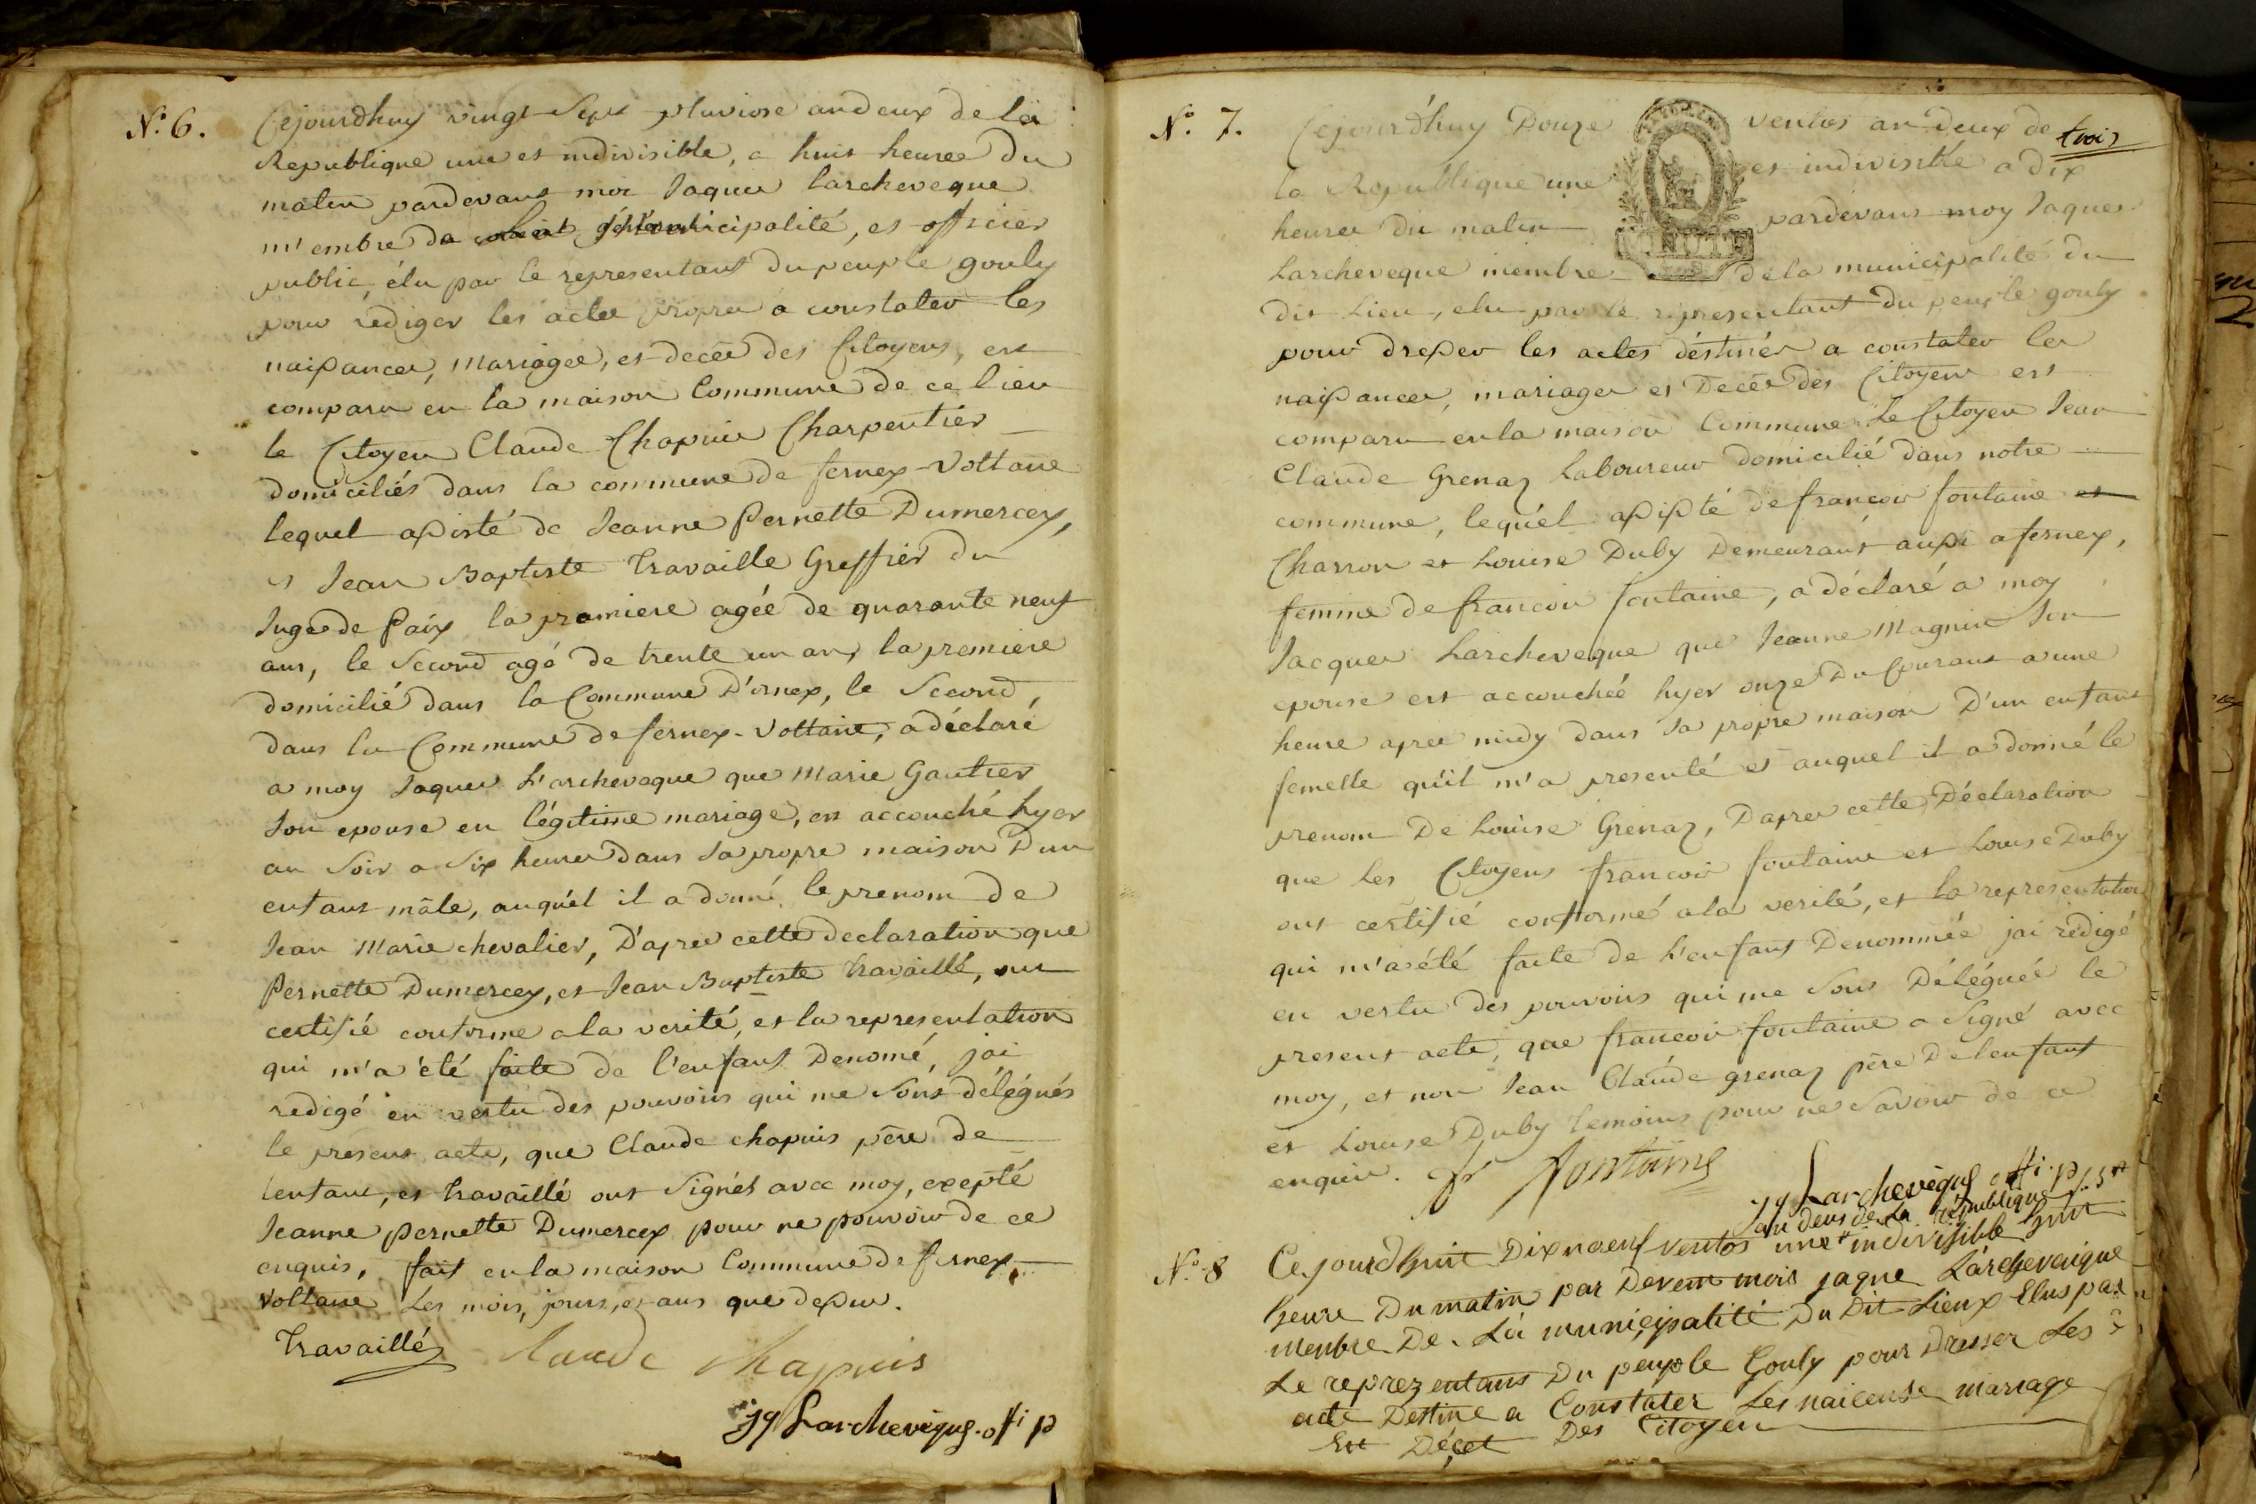 N.o 6.
Cejourdhuy vingt Sept pluviose an deux de la
Republique une et indivisible, a huit heures du
matin pardevant moi Jaques larcheveque
m'embre de municipalité, et officier
public, élu par le representant du peuple gouly
pour rédiger les actes propres a constater les
naissances, mariages, et decès des Citoyens, est
comparu en la maison Commune de ce lieu
le Citoyen Claude Chapuis Charpentiér
domiciliés dans la commune de fernex-Voltaire
lequel assisté de Jeanne Pernette Dumercey,
et Jean Baptiste Travaille Greffiér du
Juge de Paix la premiere agée de quarante neuf
ans, le Second agé de trente un an, la premiere
domicilié dans la Commune D'ornex, le Second,
dans la Commune de fernex-Voltaire, a déclaré
a moy Jaques L'archeveque que Marie Gautier
Son epouse en légitime mariage, est accouché hyer
au Soir a Six heures dans sa propre maison D'un
enfant mâle, auquél il a donné le prenom de
Jean Marie chevalier, D'apres cette declaration que
Pernette Dumercey, et Jean Baptiste Travaillé, ont
certifié conforme a la verité, et la representation
qui m'a été faite de l'enfant Denomé, jai
redigé en vertu des pouvoirs qui me Sont délégués
le présent acte, que Claude chapuis père de
lenfant, et Travaillé ont Signés avec moy, exepté
Jeanne pernette Dumercey pour ne pouvoir de ce
enquis, fait en la maison Commune de fernex
Voltaire Les mois, jours, et ans que dessus.
Travaillé Claude Chapuis
Jq Larchevêque offi p
N.o 7.
Cejourd'huy Douze ventos an deux de
trois
la Republique une et indivisible a dix
heures du matin pardevant moy Jaques
Larcheveque membre de la municipalité du
dit Lieu, elu par le representant du peuple gouly
pour dresser les actes déstinés a constater les
naissances, mariages et Decès des Citoyens est
comparu en la maison Commune Le Citoyen Jean
Claude Grenaz Laboureur domicilié dans notre
commune, lequél assisté de francois fontaine et
Charron et Louise Duby Demeurant aussi a fernex,
femme de francois fontaine, a déclaré a moy
Jacques Larcheveque que Jeanne Magnin Son
epouse est accouchée hyer onze Du Courant a une
heure apres midy dans sa propre maison D'un enfant
femelle qu'il m'a presenté et auquel il a donné le
prenom De Louise Grenaz, Dapres cette Déclaration
que Les Citoyens francois fontaine et Louise Duby
ont certifié conformé a la verité, et la representation
qui m'a été faite de L'enfant Denommée jai rédigé
en vertu des pouvoirs qui me Sont Déléguéé le
present acte, que francois fontaine a Signé avec
moy, et non Jean Claude grenaz père De lenfant
et Louise Duby temoins pour ne Savoir de ce
enquis. fr fontaine
Jq Larchevêque offi. p
N.o 8
an deus de La republique
Ce jourdhuit Dixneuf ventos une indivisible huit
heure Du matin par Devem mois jaque Larcheveique
menbre De La municipalité Du Dit Lieux Elus par
Le reprezentans Du peuple Gouly pour Dresser Les
acte Destine a Constater Les naicense mariage
Ett Décet Des Citoyen